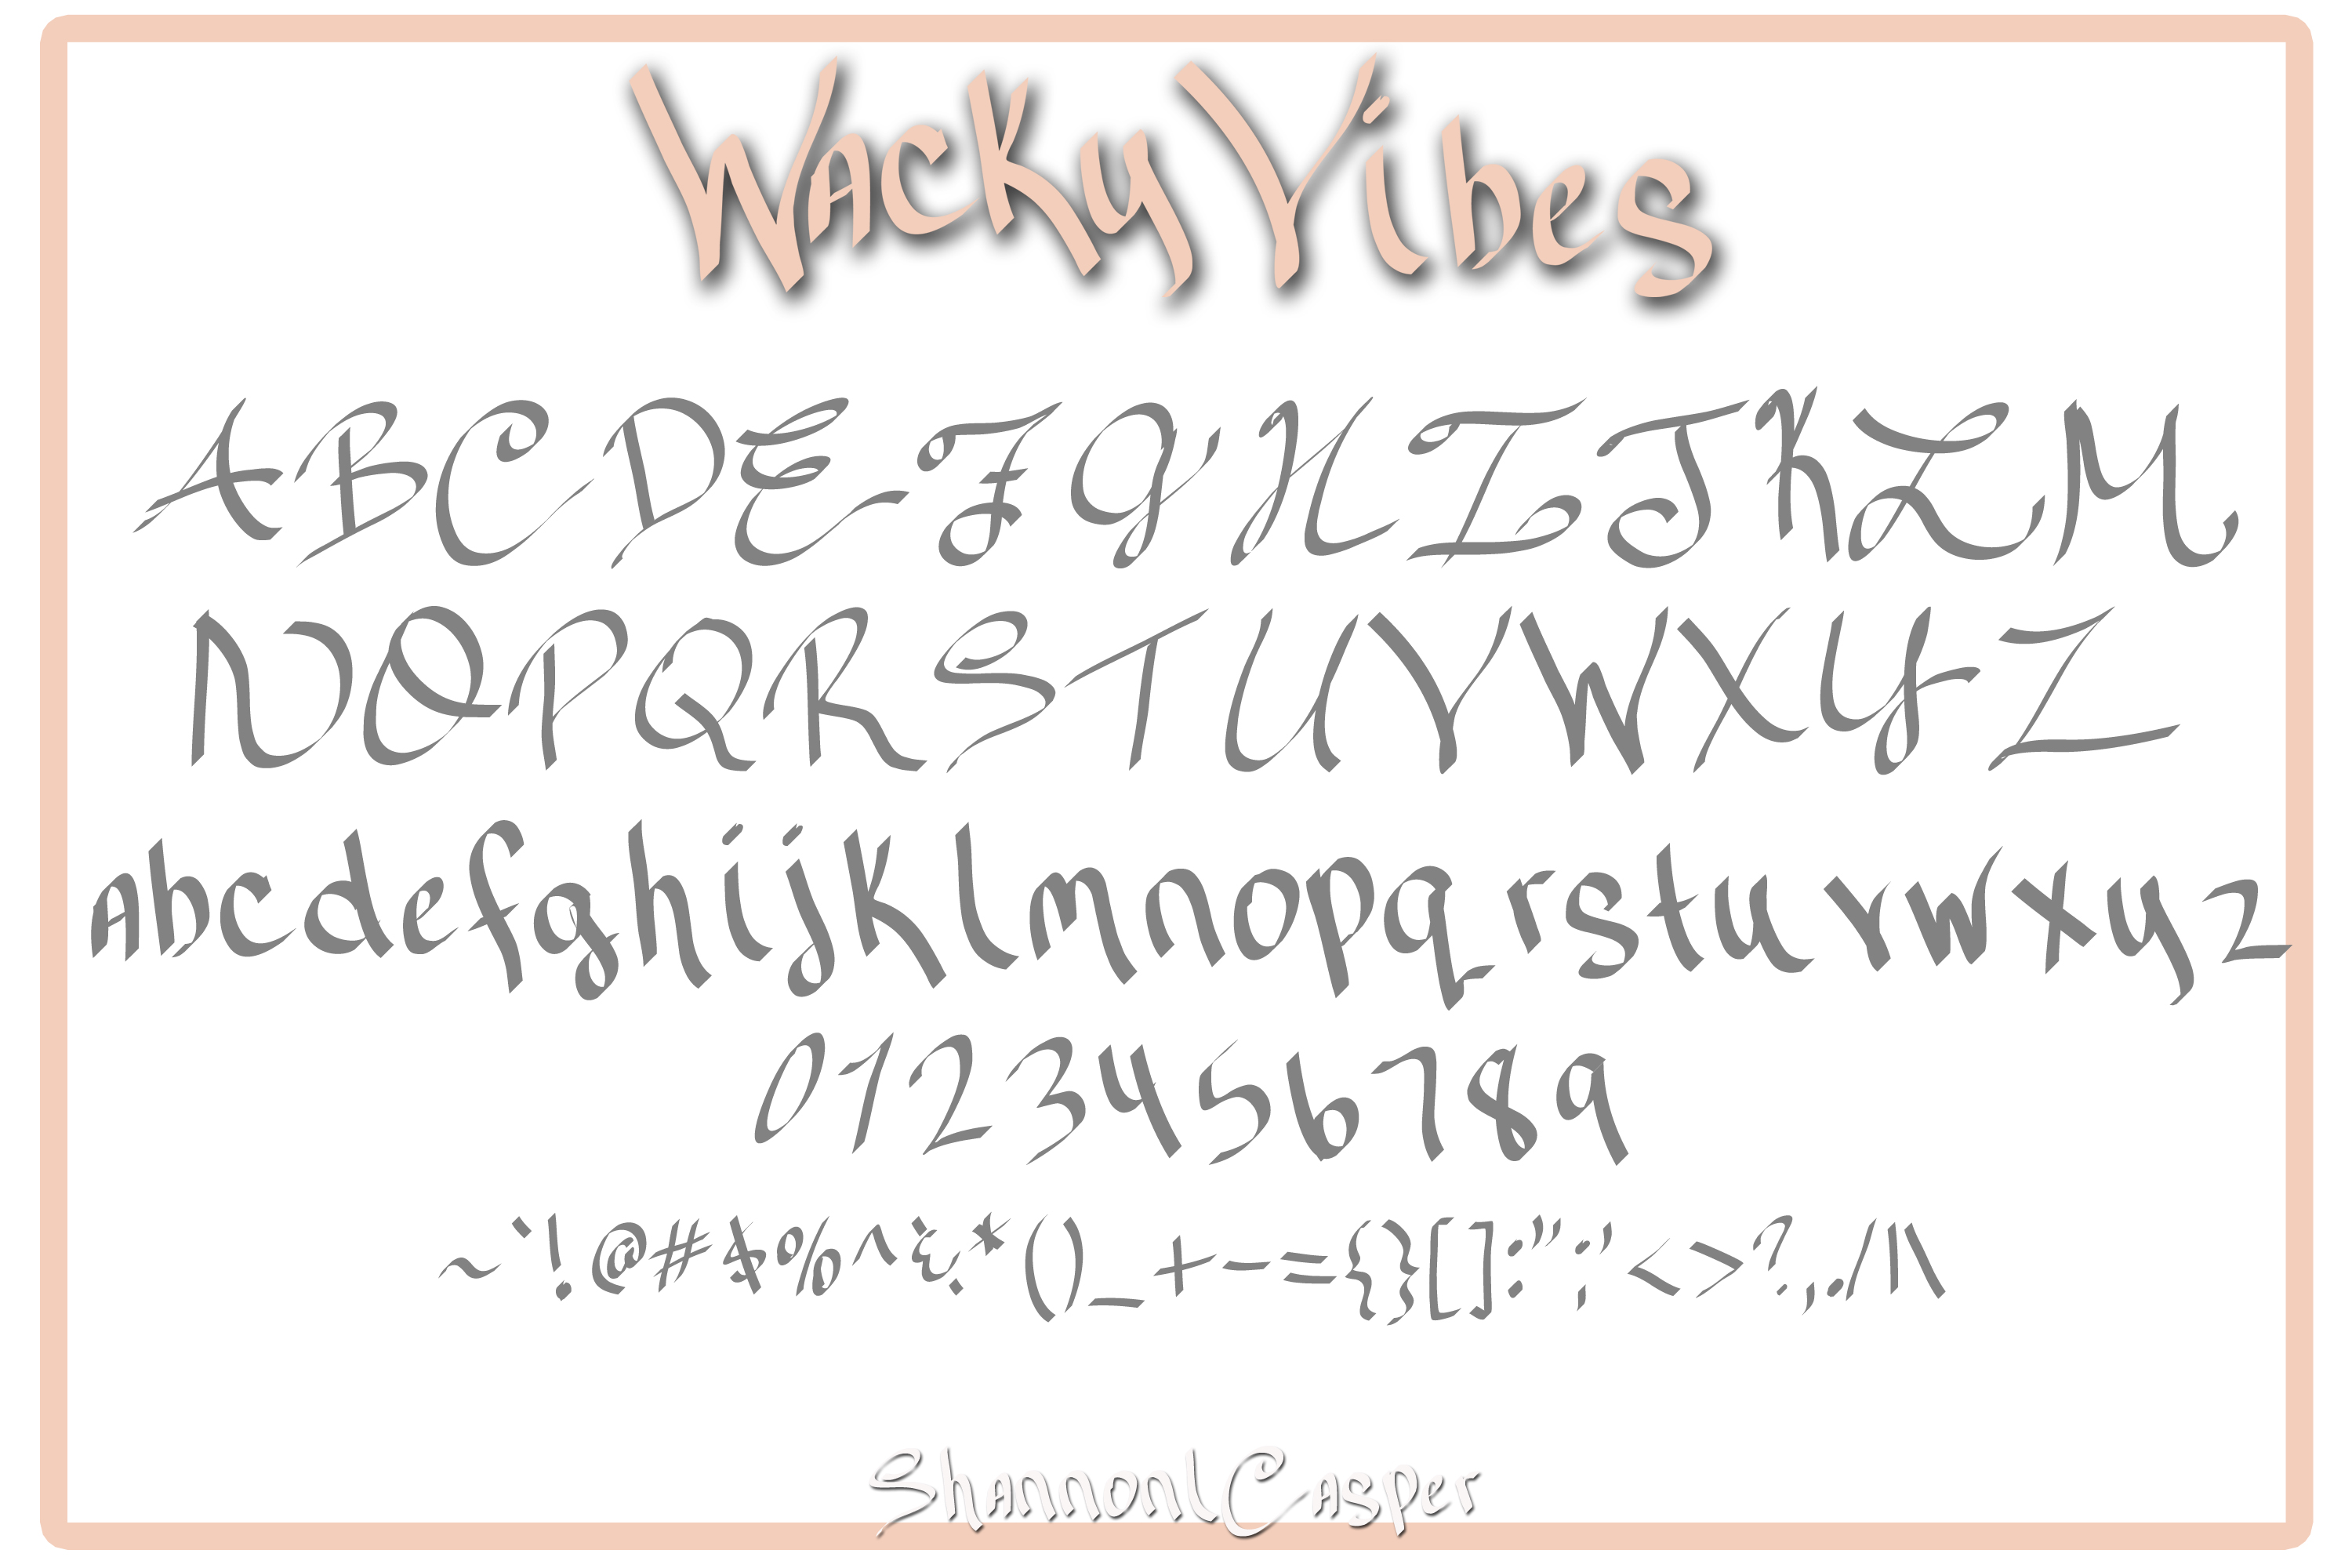 Wacky Vibes
A B C D E F G H I J K L M
N O P Q R S T U V W X Y Z
a b c d e f g h i j k l m n o p q r s t u v w x y z
0 1 2 3 4 5 6 7 8 9
~ ` ! @ # $ % ^ & * ( ) _ + - = { } [ ] : " ; ' < > ? , . / | \
Shannon l Casper